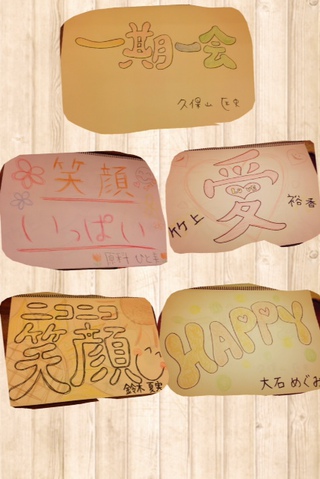 一期一会
久保山
笑顔
いっぱい
愛
竹上
裕香
ニコニコ
笑顔
鈴木
HAPPY
大石めぐみ